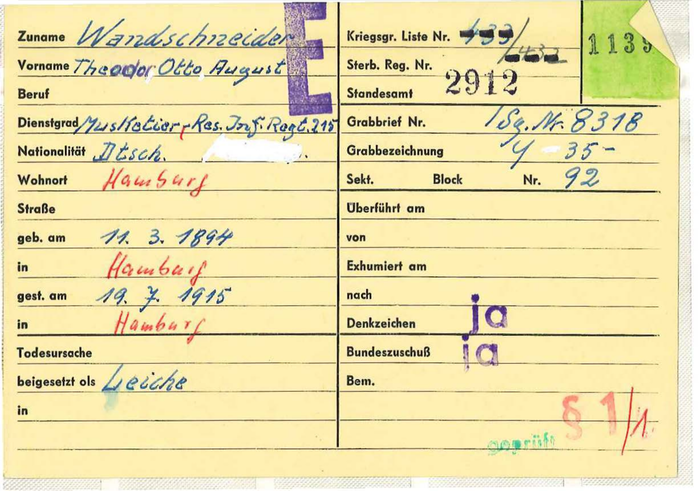 Zuname Wandschneider
Vorname Theodor Otto August
Beruf
Dienstgrad Musketier, Res. Inf. Regt. 215
Nationalität Dtsch.
Wohnort Hamburg
Straße
geb. am 11. 3. 1894
in Hamburg
gest. am 19. 7. 1915
in Hamburg
Todesursache
beigesetzt als Leiche
in
E
Kriegsgr. Liste Nr. 433/432
Sterb. Reg. Nr. 2912
Standesamt
Grabbrief Nr. Sg. Nr. 8318
Grabbezeichnung Y 35-
Sekt. Block Nr. 92
Überführt am
von
Exhumiert am
nach
Denkzeichen ja
Bundeszuschuß ja
Bem.
§ 1/1.
geprüft
1139